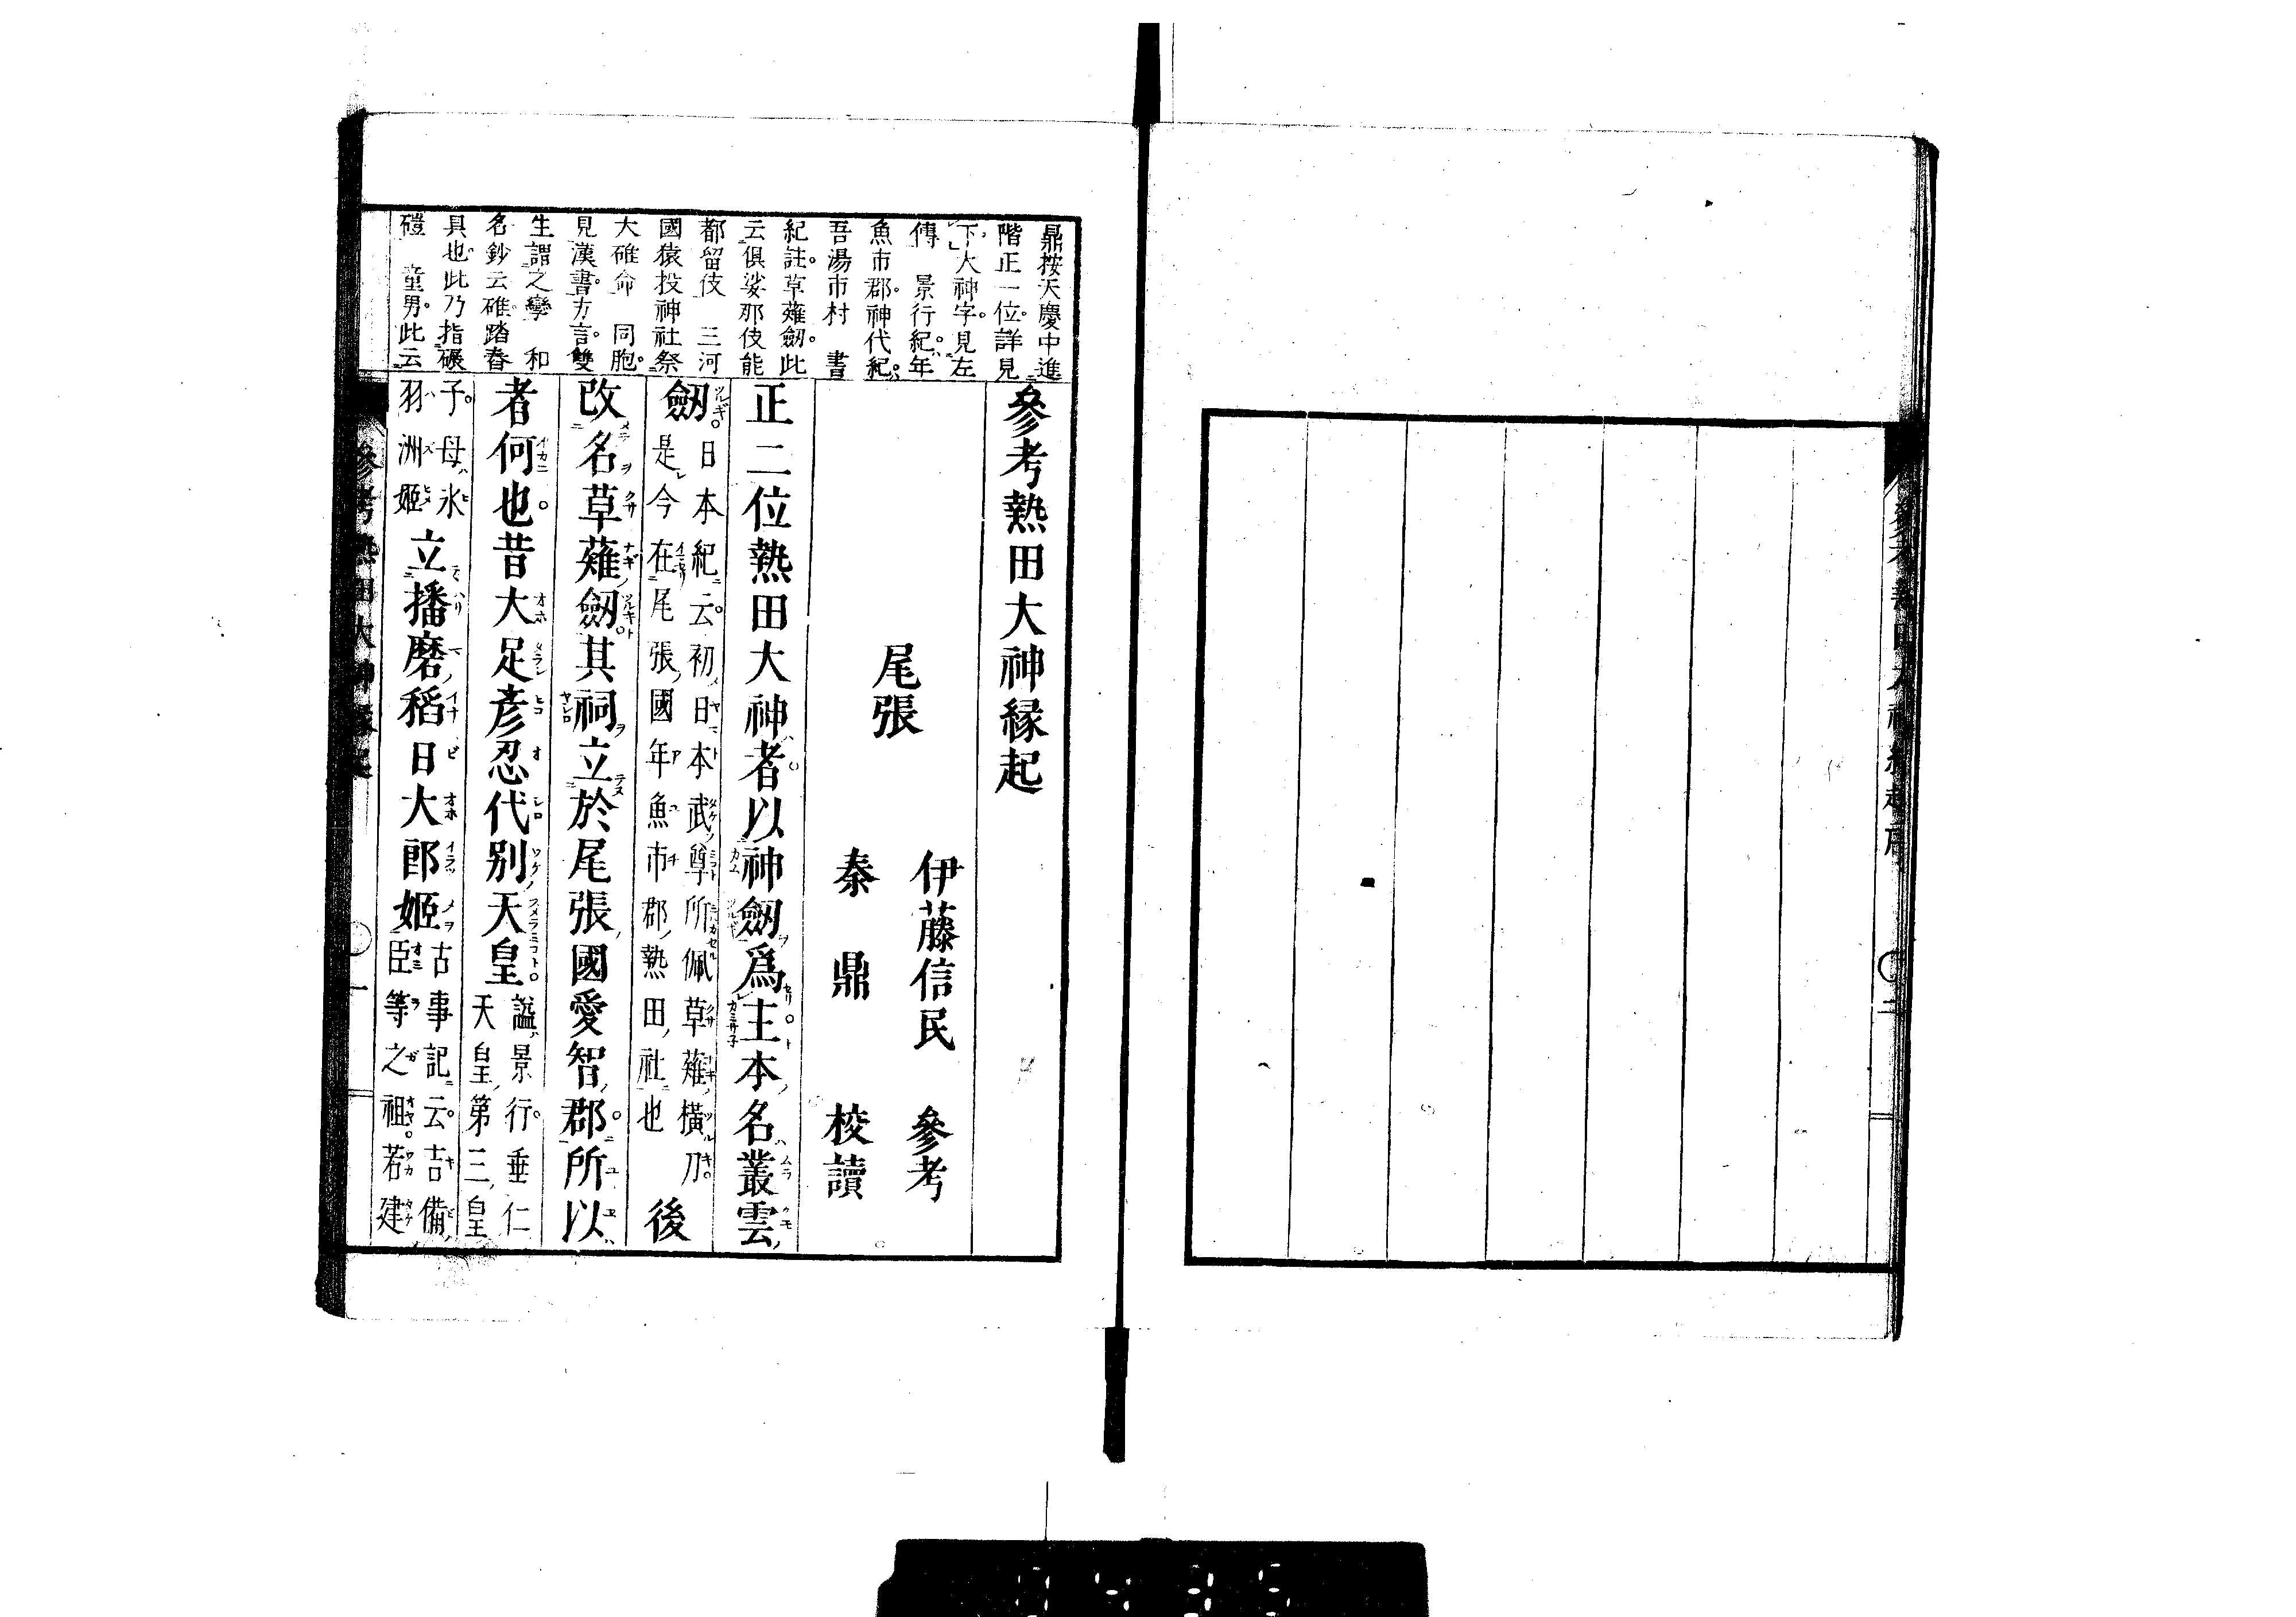 鼎按天慶中進
階正一位。詳見
下大神字。見左
傳 景行紀。年
魚市郡。神代紀。
吾湯市村 書
紀註。草薙劔。此
云俱娑那伎能
都留伎 三河
國猿投神社祭
大碓命 同胞。
見漢書。方言。雙
生謂之孿 和
名鈔云碓。踏舂
具也。此乃指碾
磑 童男。此云
參考熱田大神縁起
尾張
伊藤信民 參考
秦鼎 校讀
正二位熱田大神者。以神劔爲主。本名叢雲
劔。日本紀云。初日本武尊所佩草薙横刀。
是今在尾張國年魚市郡熱田社也 後
改名草薙劔。其祠立於尾張國愛智郡。所以
者何也。昔大足彦忍代別天皇。謚景行。垂仁
天皇第三皇
子。母氷
羽洲姬 立播磨稻日大郎姬 古事記云。吉備
臣等之祖。若建
參考熱田大神縁起 一